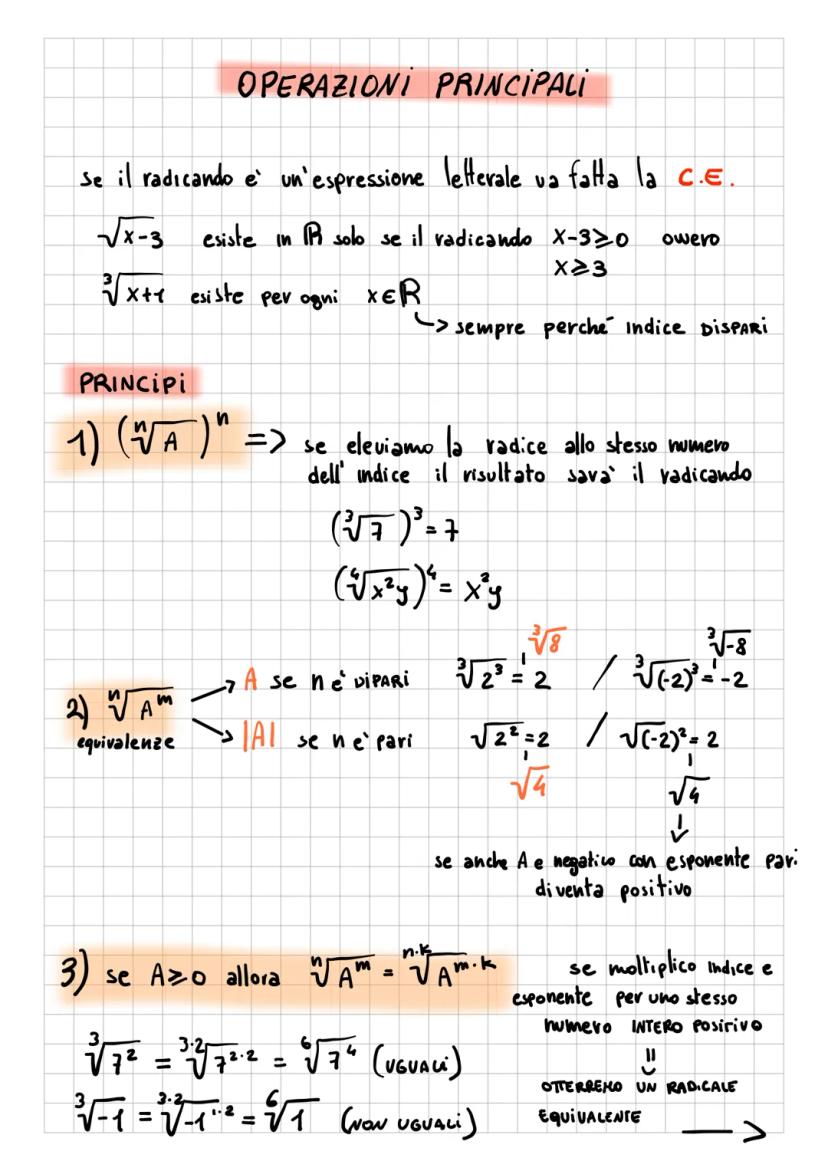 OPERAZIONI PRINCIPALI
se il radicando e' un'espressione letterale va fatta la C.E.
√x-3 esiste in ℝ solo se il radicando x-3≥0 ovvero
x≥3
³√x+1 esiste per ogni x∈ℝ
↳ sempre perché indice DISPARI
PRINCIPI
1) (ⁿ√A)ⁿ => se eleviamo la radice allo stesso numero
dell'indice il risultato sara' il radicando
(³√7)³ = 7
(⁴√x²y)⁴ = x²y
³√8 ³√-8
2) ⁿ√Aᵐ → A se n e' DIPARI ³√2³ = 2 / ³√(-2)³ = -2
equivalenze → |A| se n e' pari √2² = 2 / √(-2)² = 2
√4 √4
se anche A e negativo con esponente pari
diventa positivo
3) se A≥0 allora ⁿ√Aᵐ = ⁿ·ᵏ√Aᵐ·ᵏ
se moltiplico indice e
esponente per uno stesso
numero INTERO POSIRIVO
OTTERREMO UN RADICALE
EQUIVALENTE →
³√7² = ³·²√7²·² = ⁶√7⁴ (UGUALI)
³√-1 = ³·²√-1¹·² = ⁶√1 (NON UGUALI)